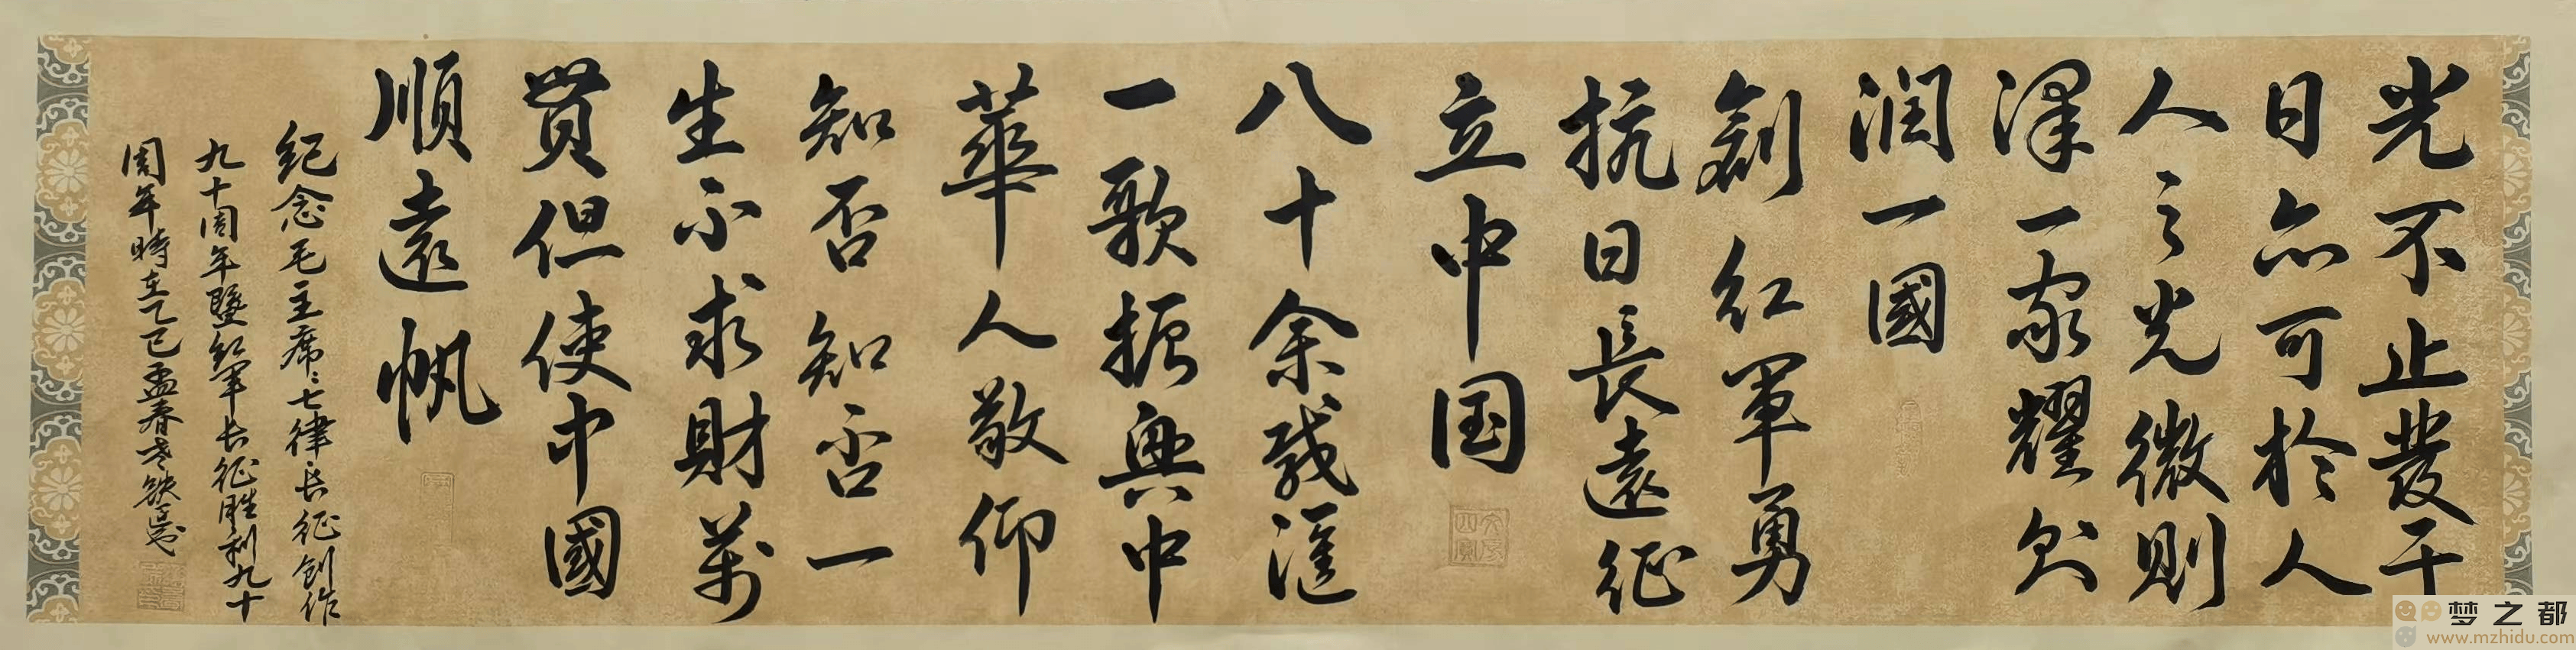 光不止發于
日亦可於人
人之光微則
澤一家耀则
润一國
創紅軍勇
抗日長遠征
立中国
八十余載滙
一歌振興中
華人敬仰
知否知否一
生不求財萬
贯但使中國
順遠帆
紀念毛主席七律长征创作
九十周年暨红军长征胜利九十
周年時在乙巳孟春
梦之都
www.mzhidu.com